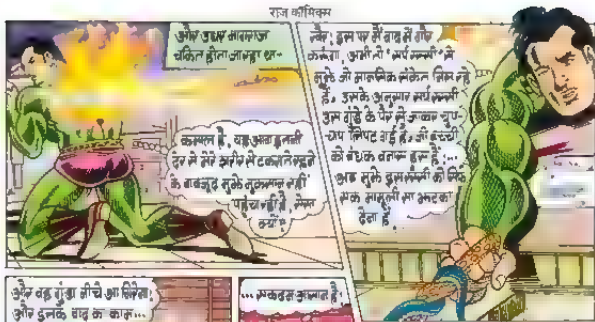 राज कॉमिक्स
और उधर नागराज
चकित होता जा रहा था-
कमाल है, यह आग इतनी
देर से मेरे शरीर से टकराते रहने
के बावजूद मुझे नुकसान नहीं
पहुंचा रही है, ऐसा
क्यों?
खैर, इस पर मैं बाद में गौर
करूंगा, अभी तो 'सर्प रस्सी' से
मुझे जो मानसिक संकेत मिल रहे
हैं, उसके अनुसार सर्प रस्सी
उस गुंडे के पैर से जाकर चुप-
चाप लिपट गई है, जो बच्ची
को बंधक बनाए हुए है...
अब मुझे इस रस्सी को सिर्फ
एक मामूली सा झटका
देना है,
और वह गुंडा नीचे आ गिरेगा;
और इसके बाद का काम...
...एकदम आसान है.